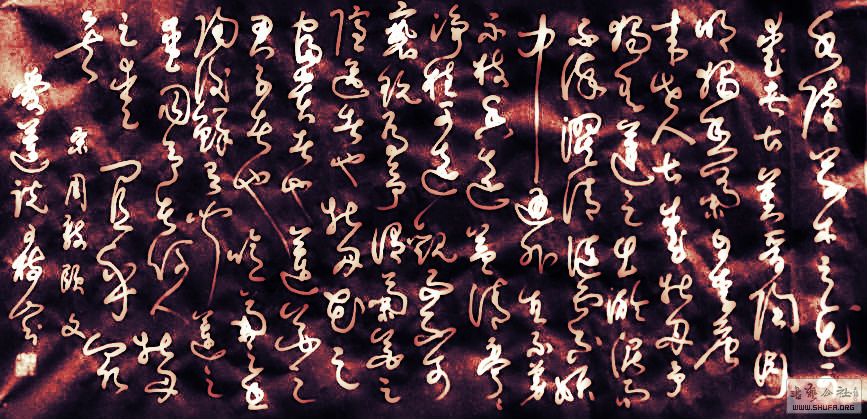 水陸草木之花可
愛者甚蕃晋陶淵
明獨愛菊自李唐
来世人甚愛牡丹予
獨愛蓮之出淤泥而
不染濯清漣而不妖
中通外直不蔓
不枝香遠益清亭亭
净植可遠觀而不可
褻玩焉予謂菊花之
隱逸者也牡丹花之
富貴者也蓮花之
君子者也噫菊之愛
陶後鮮有聞蓮之
愛同予者何人牡丹
之愛宜乎眾
矣
宋周敦頤文
愛蓮説
WWW.SHUFA.ORG